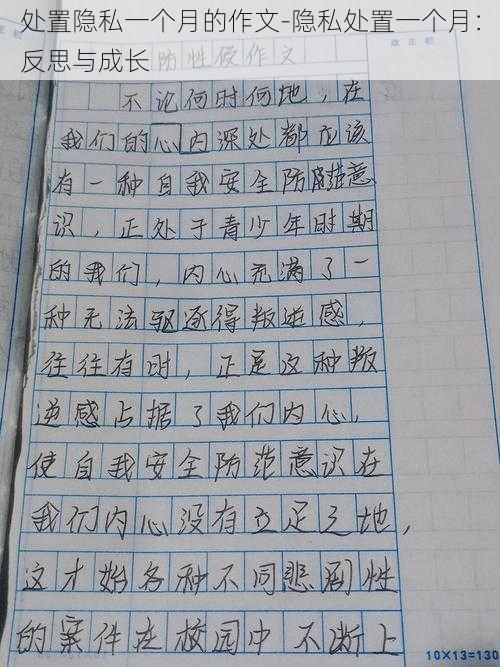 处置隐私一个月的作文-隐私处置一个月：
反思与成长
防性侵作文
改正栏
不论何时何地，在
我们的心内深处都应该
有一种自我安全防范意
识，正处于青少年时期
的我们，内心充满了一
种无法驱逐得叛逆感，
往往有时，正是这种叛
逆感占据了我们内心，
使自我安全防范意识在
我们内心没有立足之地，
这才始各种不同悲剧性
的案件在校园中不断上
10×13=130